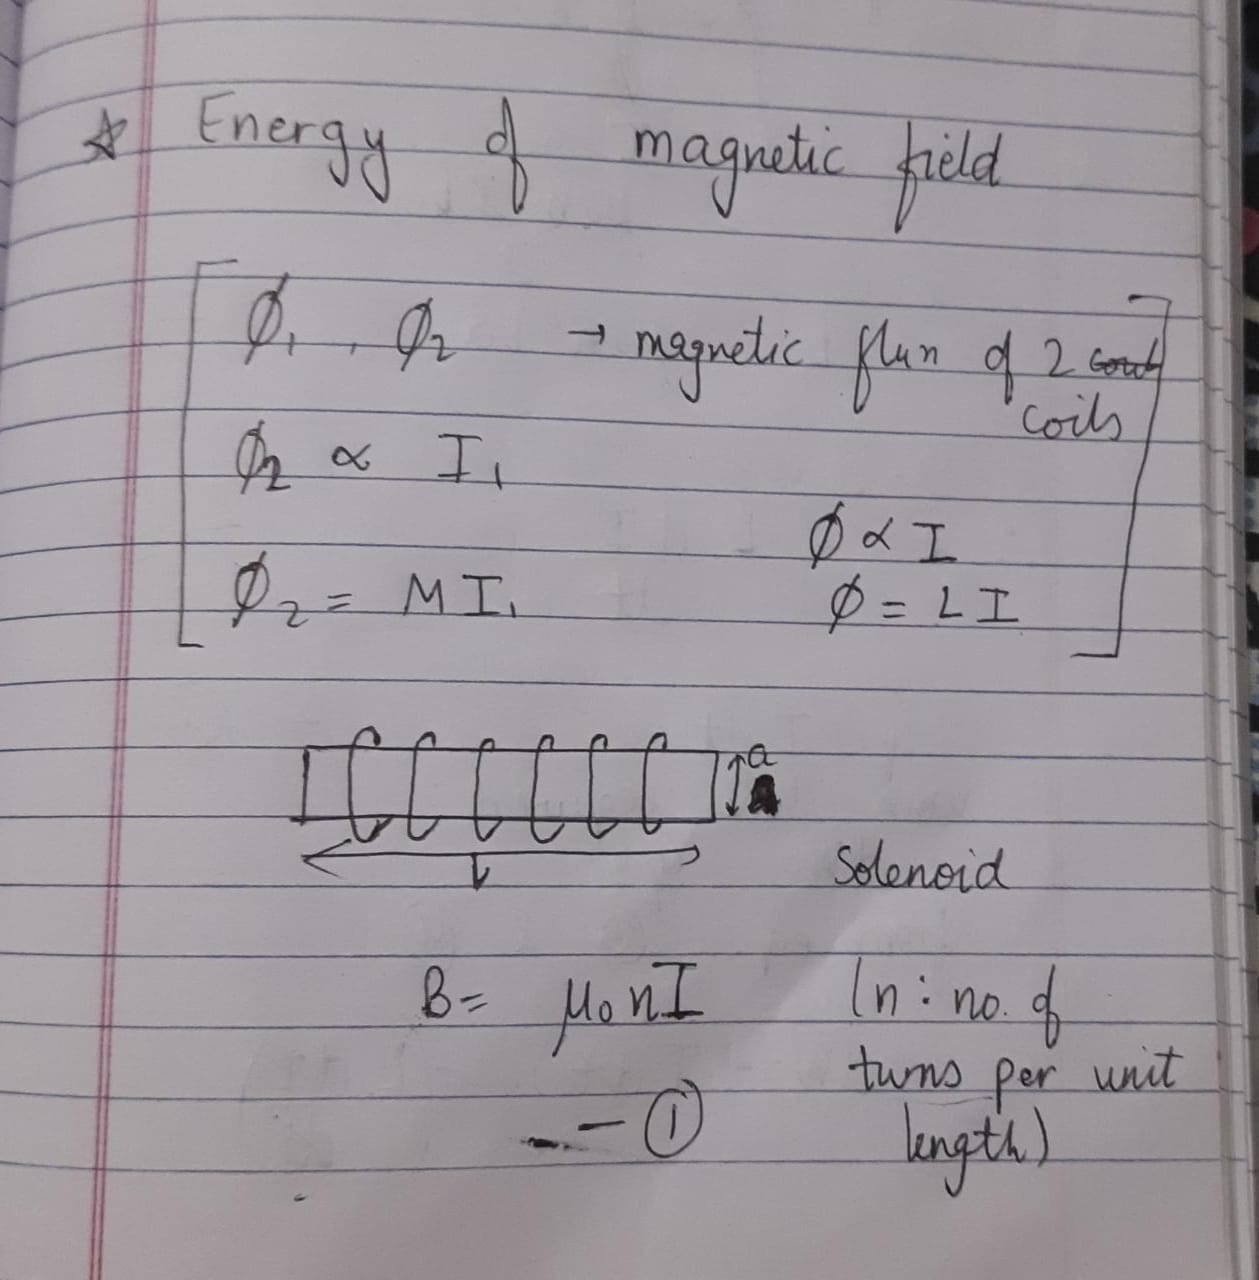 ☆ Energy of magnetic field
Ø₁ , Ø₂ → magnetic flux of 2
coils
Ø₂ ∝ I₁
Ø ∝ I
Ø₂ = M I₁
Ø = L I
a
l
Solenoid
B = μ₀ n I (n : no. of
turns per unit
— ①
length)